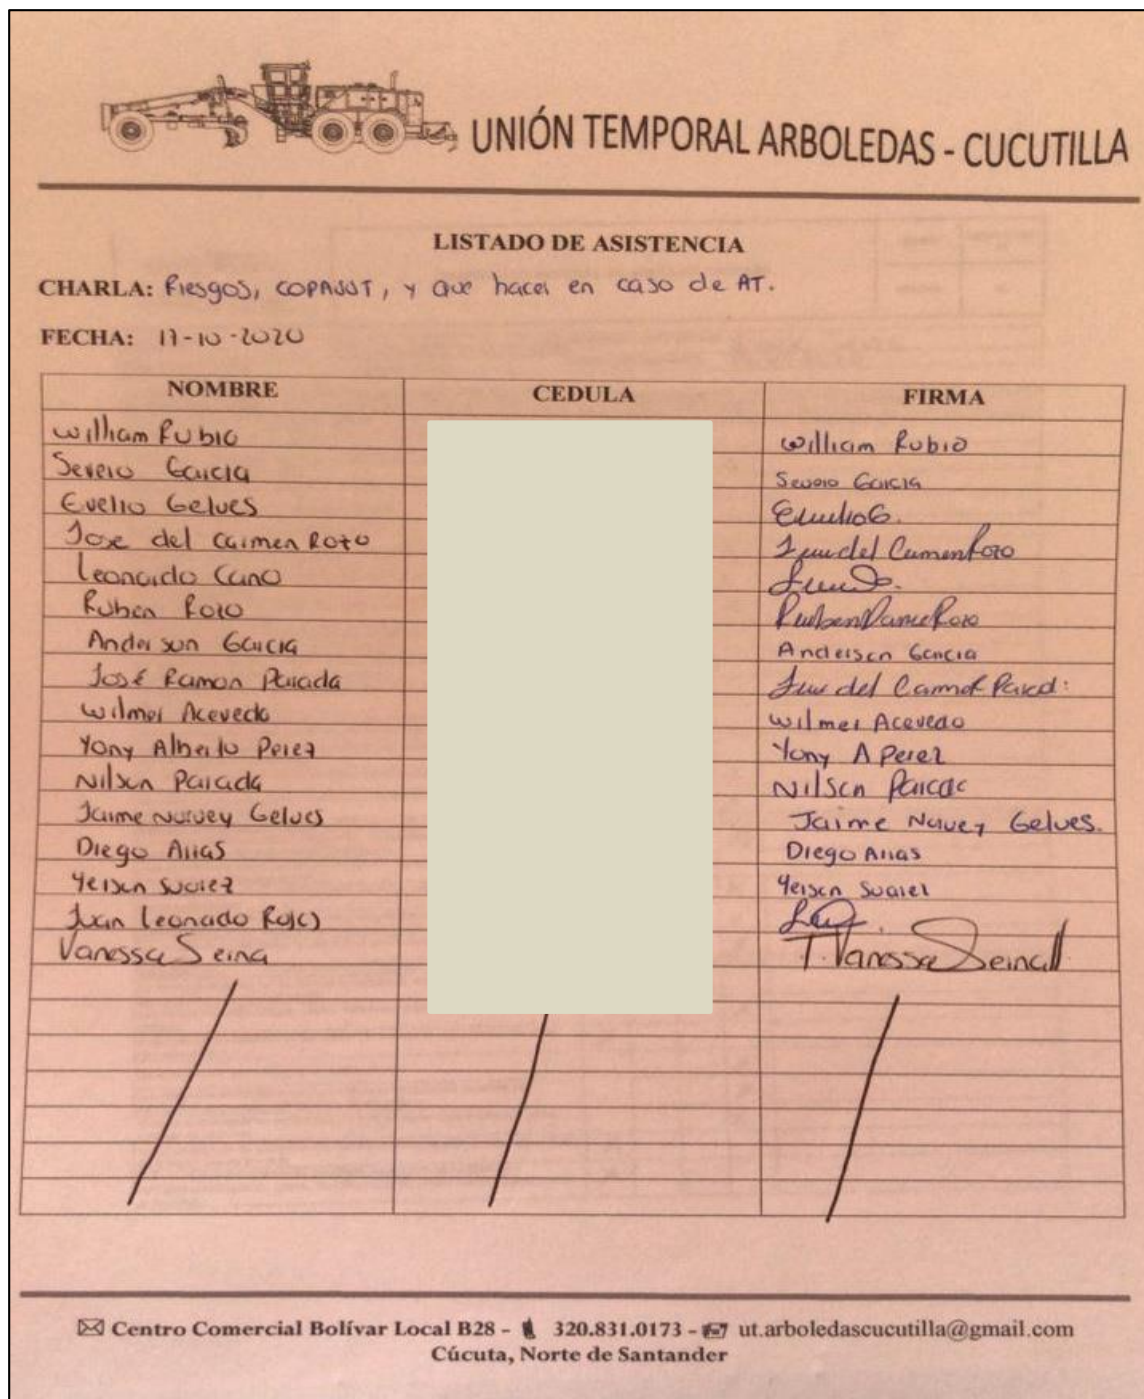 UNIÓN TEMPORAL ARBOLEDAS - CUCUTILLA
LISTADO DE ASISTENCIA
CHARLA: Riesgos, COPASST, y que hacer en caso de AT.
FECHA: 17-10-2020
NOMBRE CEDULA FIRMA
William Rubio William Rubio
Severo Garcia Severo Garcia
Evelio Gelves Evelio G.
Jose del Carmen Rozo Jose del Carmen Rozo
Leonardo Cano
Ruben Rozo Ruben Rozo
Anderson Garcia Anderson Garcia
José Ramon Parada
Wilmer Acevedo Wilmer Acevedo
Yony Alberto Perez Yony A Perez
Nilson Parada Nilson
Jaime Narvey Gelves Jaime Narvey Gelves.
Diego Arias Diego Arias
Yeison Suarez Yeison Suarez
Juan Leonardo Rojas
Vanessa Seina T. Vanessa
Centro Comercial Bolívar Local B28 - 320.831.0173 - ut.arboledascucutilla@gmail.com
Cúcuta, Norte de Santander